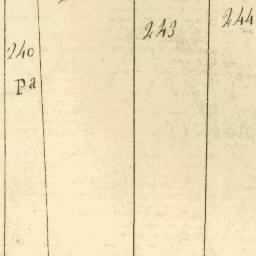 244
243
240
Pa